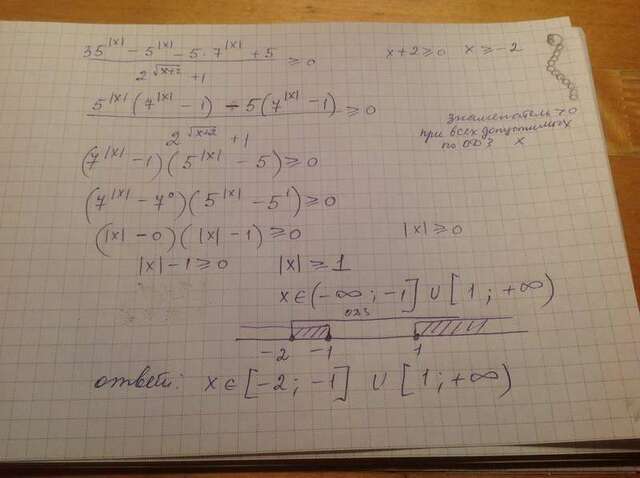 35^|x| - 5^|x| - 5·7^|x| + 5 / 2^√(x+2) + 1 ≥ 0    x+2 ≥ 0    x ≥ -2
5^|x| (7^|x| - 1) - 5(7^|x| - 1) / 2^√(x+2) + 1 ≥ 0
знаменатель > 0
при всех допустимых
по ОДЗ x
(7^|x| - 1)(5^|x| - 5) ≥ 0
(7^|x| - 7^0)(5^|x| - 5^1) ≥ 0
(|x| - 0)(|x| - 1) ≥ 0    |x| ≥ 0
|x| - 1 ≥ 0    |x| ≥ 1
x ∈ (-∞; -1] ∪ [1; +∞)
ОДЗ
-2 -1 1
ответ: x ∈ [-2; -1] ∪ [1; +∞)